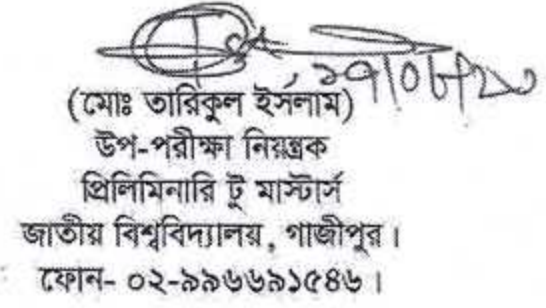 (মোঃ তারিকুল ইসলাম)
উপ-পরীক্ষা নিয়ন্ত্রক
প্রিলিমিনারি টু মাস্টার্স
জাতীয় বিশ্ববিদ্যালয়, গাজীপুর।
ফোন- ০২-৯৯৬৬৯১৫৪৬।